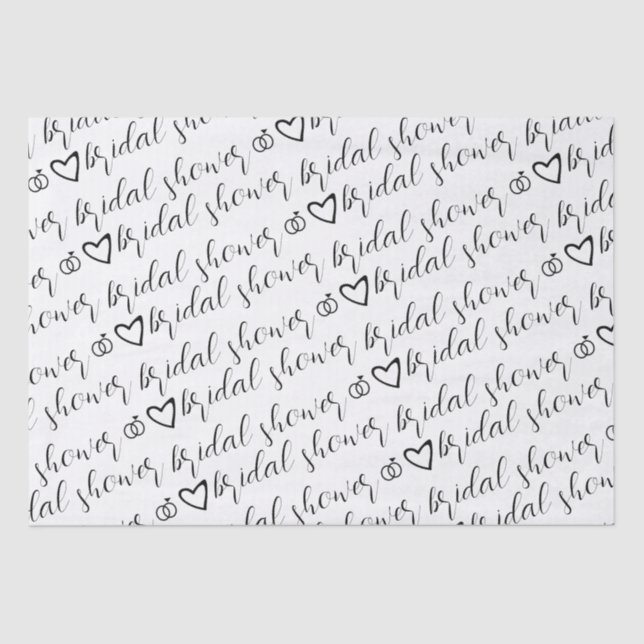 bridal
bridal shower
bridal shower bridal shower
bridal shower bridal shower
bridal shower bridal shower
bridal shower bridal shower
hower bridal shower bridal shower
shower bridal shower bridal shower
shower bridal shower bridal shower
dal shower bridal shower bridal shower
bridal shower bridal shower
bridal shower idal shower